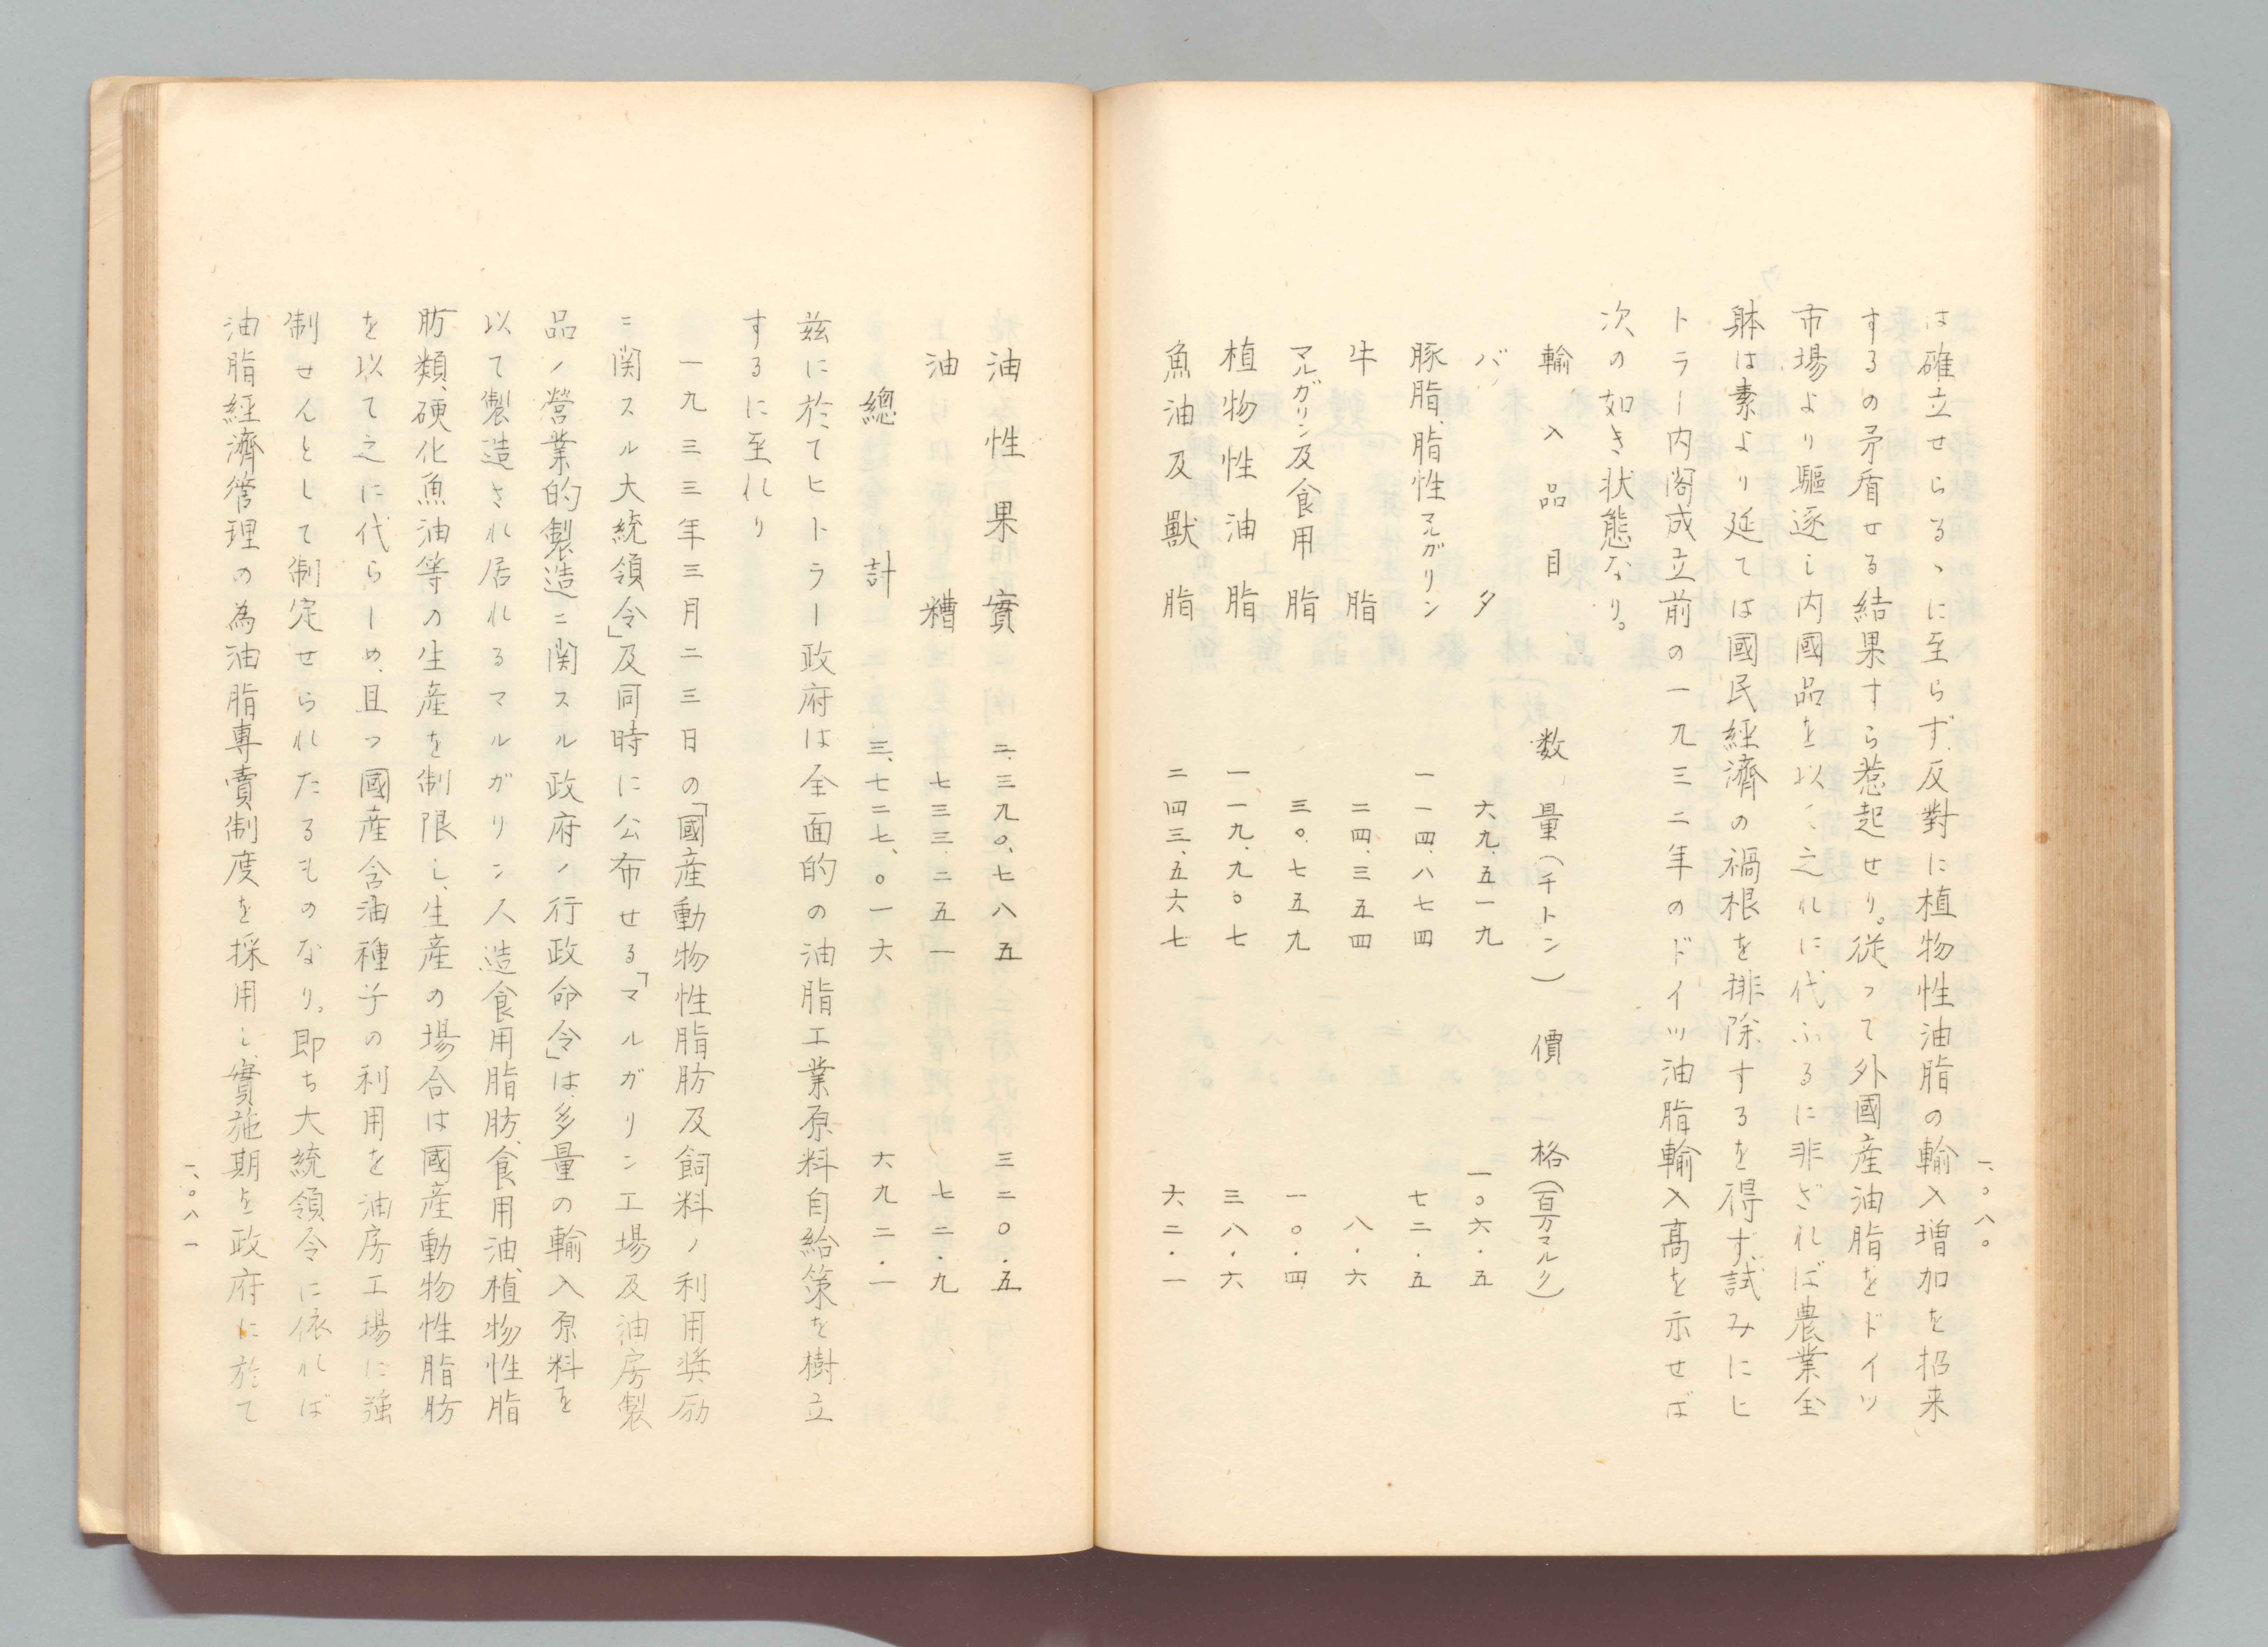 一、〇八〇
は確立せらるゝに至らず、反對に植物性油脂の輸入増加を招来
するの矛盾せる結果すら惹起せり。従って外國産油脂をドイツ
市場より驅逐し内國品を以て之れに代ふるに非ざれば農業全
躰は素より延ては國民経濟の禍根を排除するを得ず、試みにヒ
トラー内閣成立前の一九三二年のドイツ油脂輸入高を示せば
次の如き状態なり。
輸入品目 数量(千トン) 價格(百万マルク)
バタ 六九、五一九 一〇六・五
豚脂、脂性マルガリン 一一四、八七四 七二・五
牛脂 二四、三五四 八・六
マルガリン及食用脂 三〇、七五九 一〇・四
植物性油脂 一一九、九〇七 三八・六
魚油及獸脂 二四三、五六七 六二・一
油性果實 二、三九〇、七八五 三二〇・五
油糟 七三三、二五一 七二・九
總計 三、七二七、〇一六 六九二・一
茲に於てヒトラー政府は全面的の油脂工業原料自給策を樹立
するに至れり
一九三三年三月二三日の「國産動物性脂肪及飼料ノ利用奨励
ニ関スル大統領令」及同時に公布せる「マルガリン工場及油房製
品ノ營業的製造ニ関スル政府ノ行政命令」は、多量の輸入原料を
以て製造され居れるマルガリン人造食用脂肪、食用油、植物性脂
肪類、硬化魚油等の生産を制限し、生産の場合は國産動物性脂肪
を以て之に代らしめ、且つ國産含油種子の利用を油房工場に強
制せんとして制定せられたるものなり。即ち大統領令に依れば
油脂経濟管理の為油脂專賣制度を採用し、實施期を政府に於て
一、〇八一